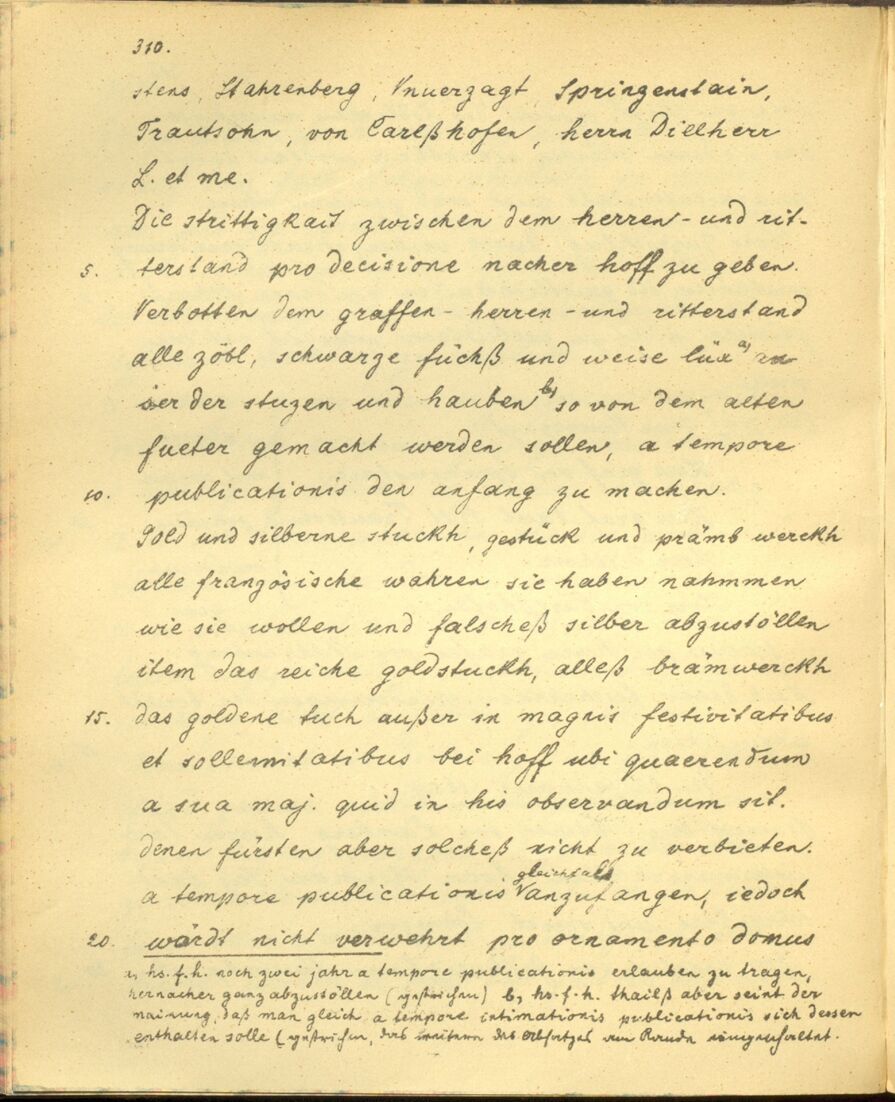 310.
stens, Stahrenberg, Unuerzagt, Springenstain,
Trautsohn, von Carlßhofen, herrn Dillherr
L. et me.
Die strittigkait zwischen dem herren- und rit-
5. terstand pro decisione nacher hoff zu geben.
Verbotten dem graffen- herren- und ritterstand
alle zöbl, schwarze füchß und weise lüx a)
der stuzen und hauben b) so von dem alten
fueter gemacht werden sollen, a tempore
10. publicationis den anfang zu machen.
Gold und silberne stuckh, gestück und prämb werckh
alle französische wahren sie haben nahmmen
wie sie wollen und falscheß silber abzustöllen
item das reiche goldstuckh, alleß brämwerckh
15. das goldene tuch außer in magnis festivitatibus
et sollemnitatibus bei hoff ubi quaerendum
a sua maj. quid in his observandum sit.
denen fürsten aber solcheß nicht zu verbieten.
gleichfalß
a tempore publicationis anzufangen, iedoch
20. wärdt nicht verwehrt pro ornamento domus
a, hs. f. h. noch zwei jahr a tempore publicationis erlauben zu tragen,
hernacher ganz abzustöllen (gestrichen) b, hs. f. h. thailß aber seint der
mainung, daß man gleich a tempore intimationis publicationis sich dessen
enthalten solle (gestrichen, das weitere des Absatzes am Rande eingeschaltet.